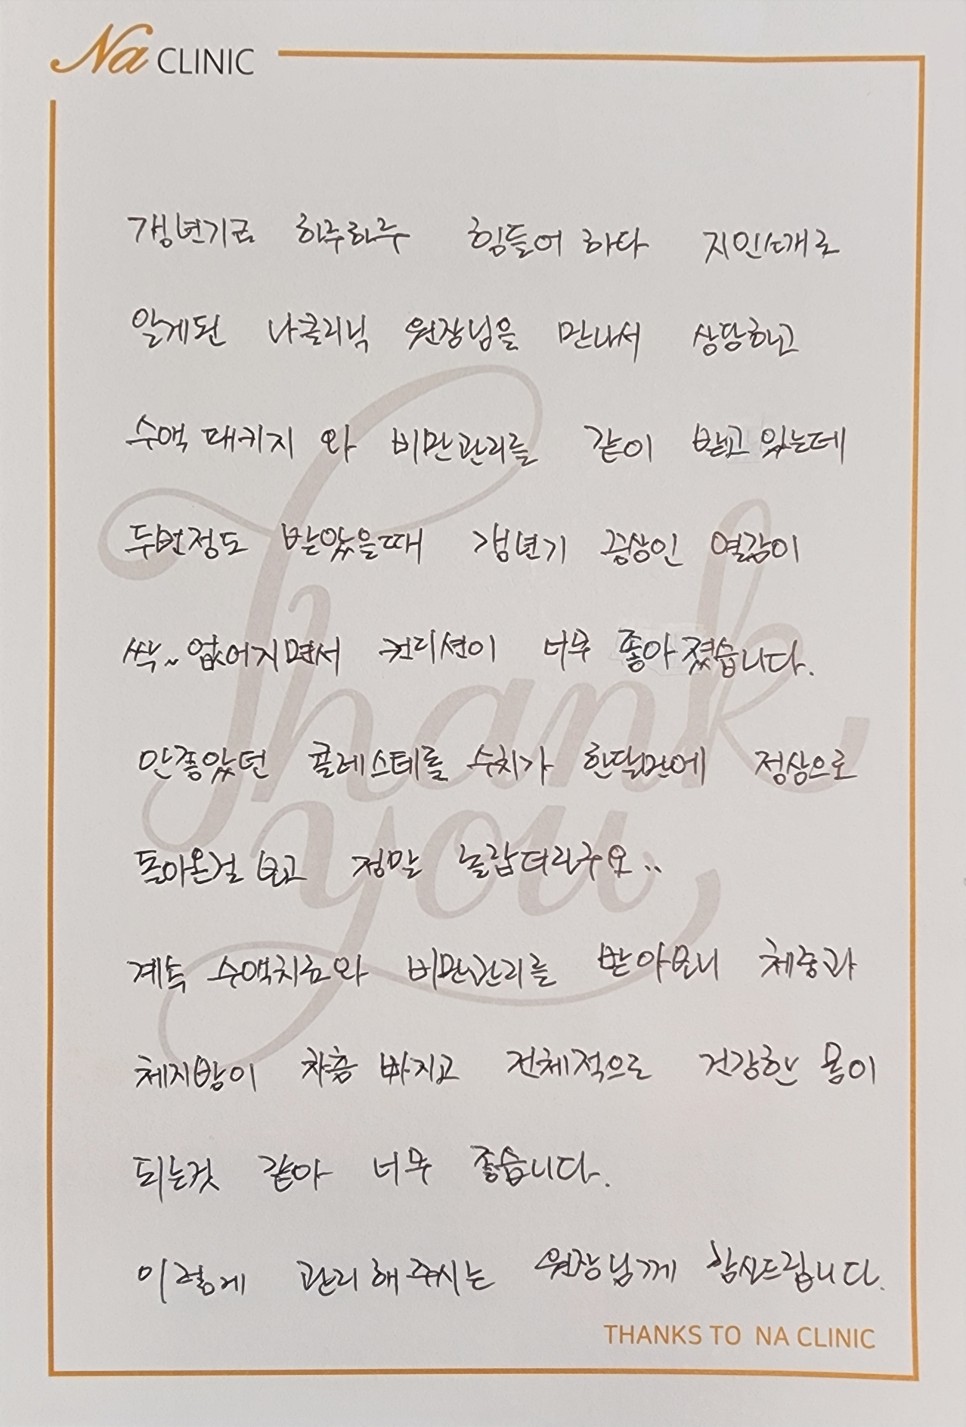 Na CLINIC
갱년기로 하루하루 힘들어 하다 지인소개로
알게된 나클리닉 원장님을 만나서 상담하고
수액 패키지 와 비만관리를 같이 받고 있는데
두번정도 받았을때 갱년기 증상인 열감이
싹~ 없어지면서 컨디션이 너무 좋아졌습니다.
안좋았던 콜레스테롤 수치가 한달만에 정상으로
돌아온걸 보고 정말 놀랍더라구요..
계속 수액치료와 비만관리를 받아보니 체중과
체지방이 차츰 빠지고 전체적으로 건강한 몸이
되는것 같아 너무 좋습니다.
이렇게 관리해주시는 원장님께 감사드립니다.
Thank you,
THANKS TO NA CLINIC